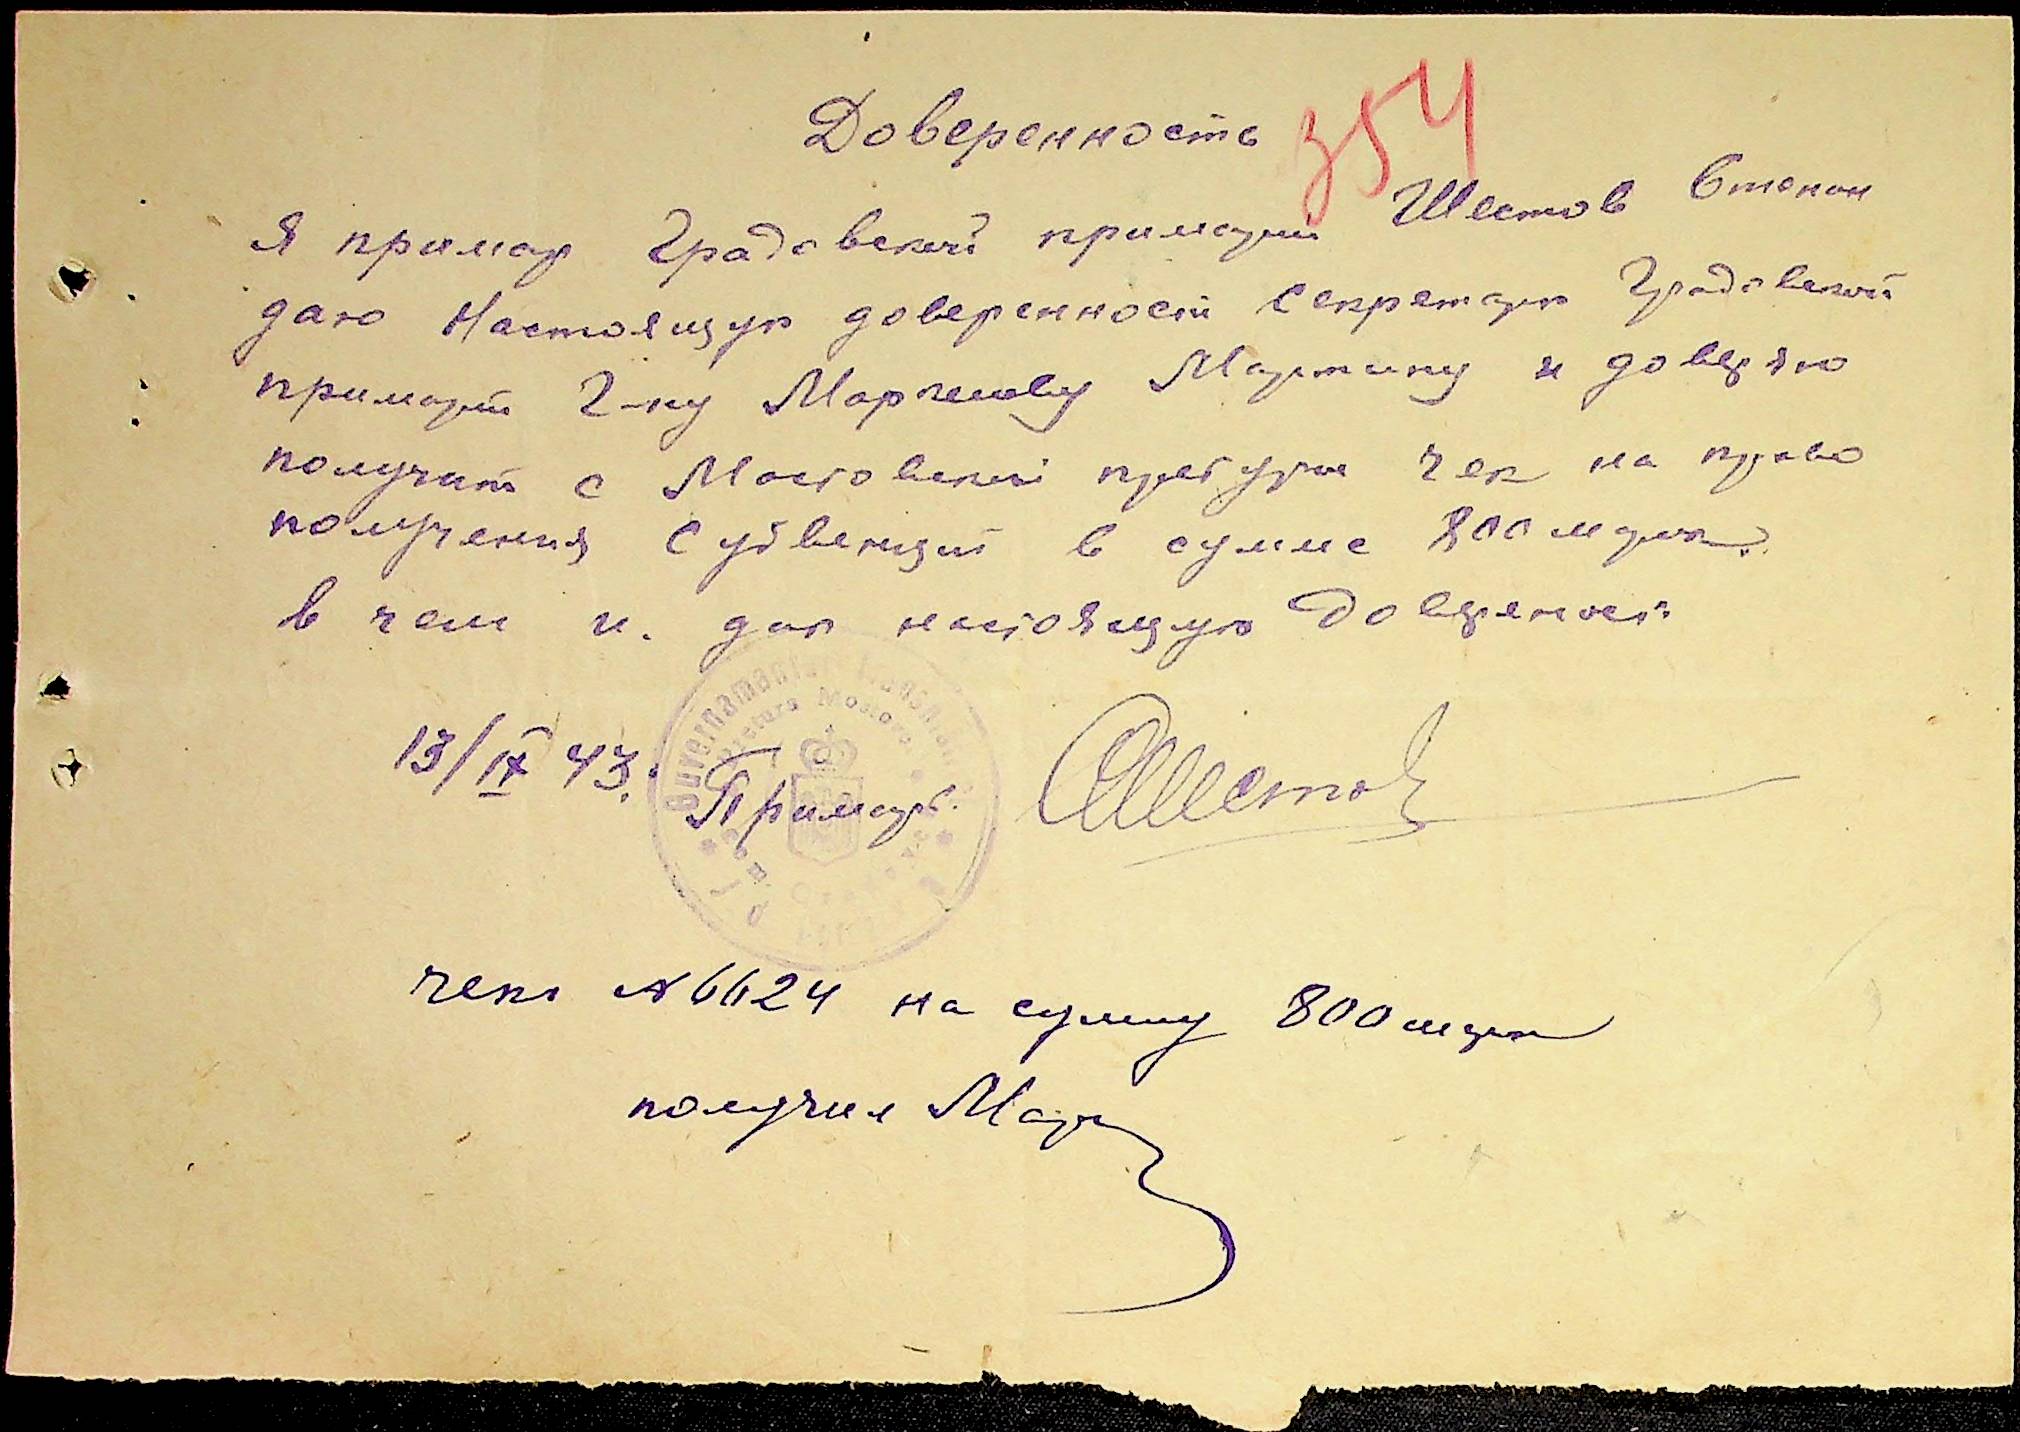 354
Доверенность
Я примар Градовской примарии Шестов Степан
даю Настоящую доверенность секретарю Градовской
примарии Г-ну Марченову Мартину и доверяю
получить с Мостовской претуры чек на право
получения Субвенций в сумме 800 марок.
в чем и. даю настоящую Доверенность
13/IX 43. Примарь. СШестов
Guvernământul Transnistriei
Pretura Mostovoi
чек № 6624 на сумму 800 марок
получил Мар